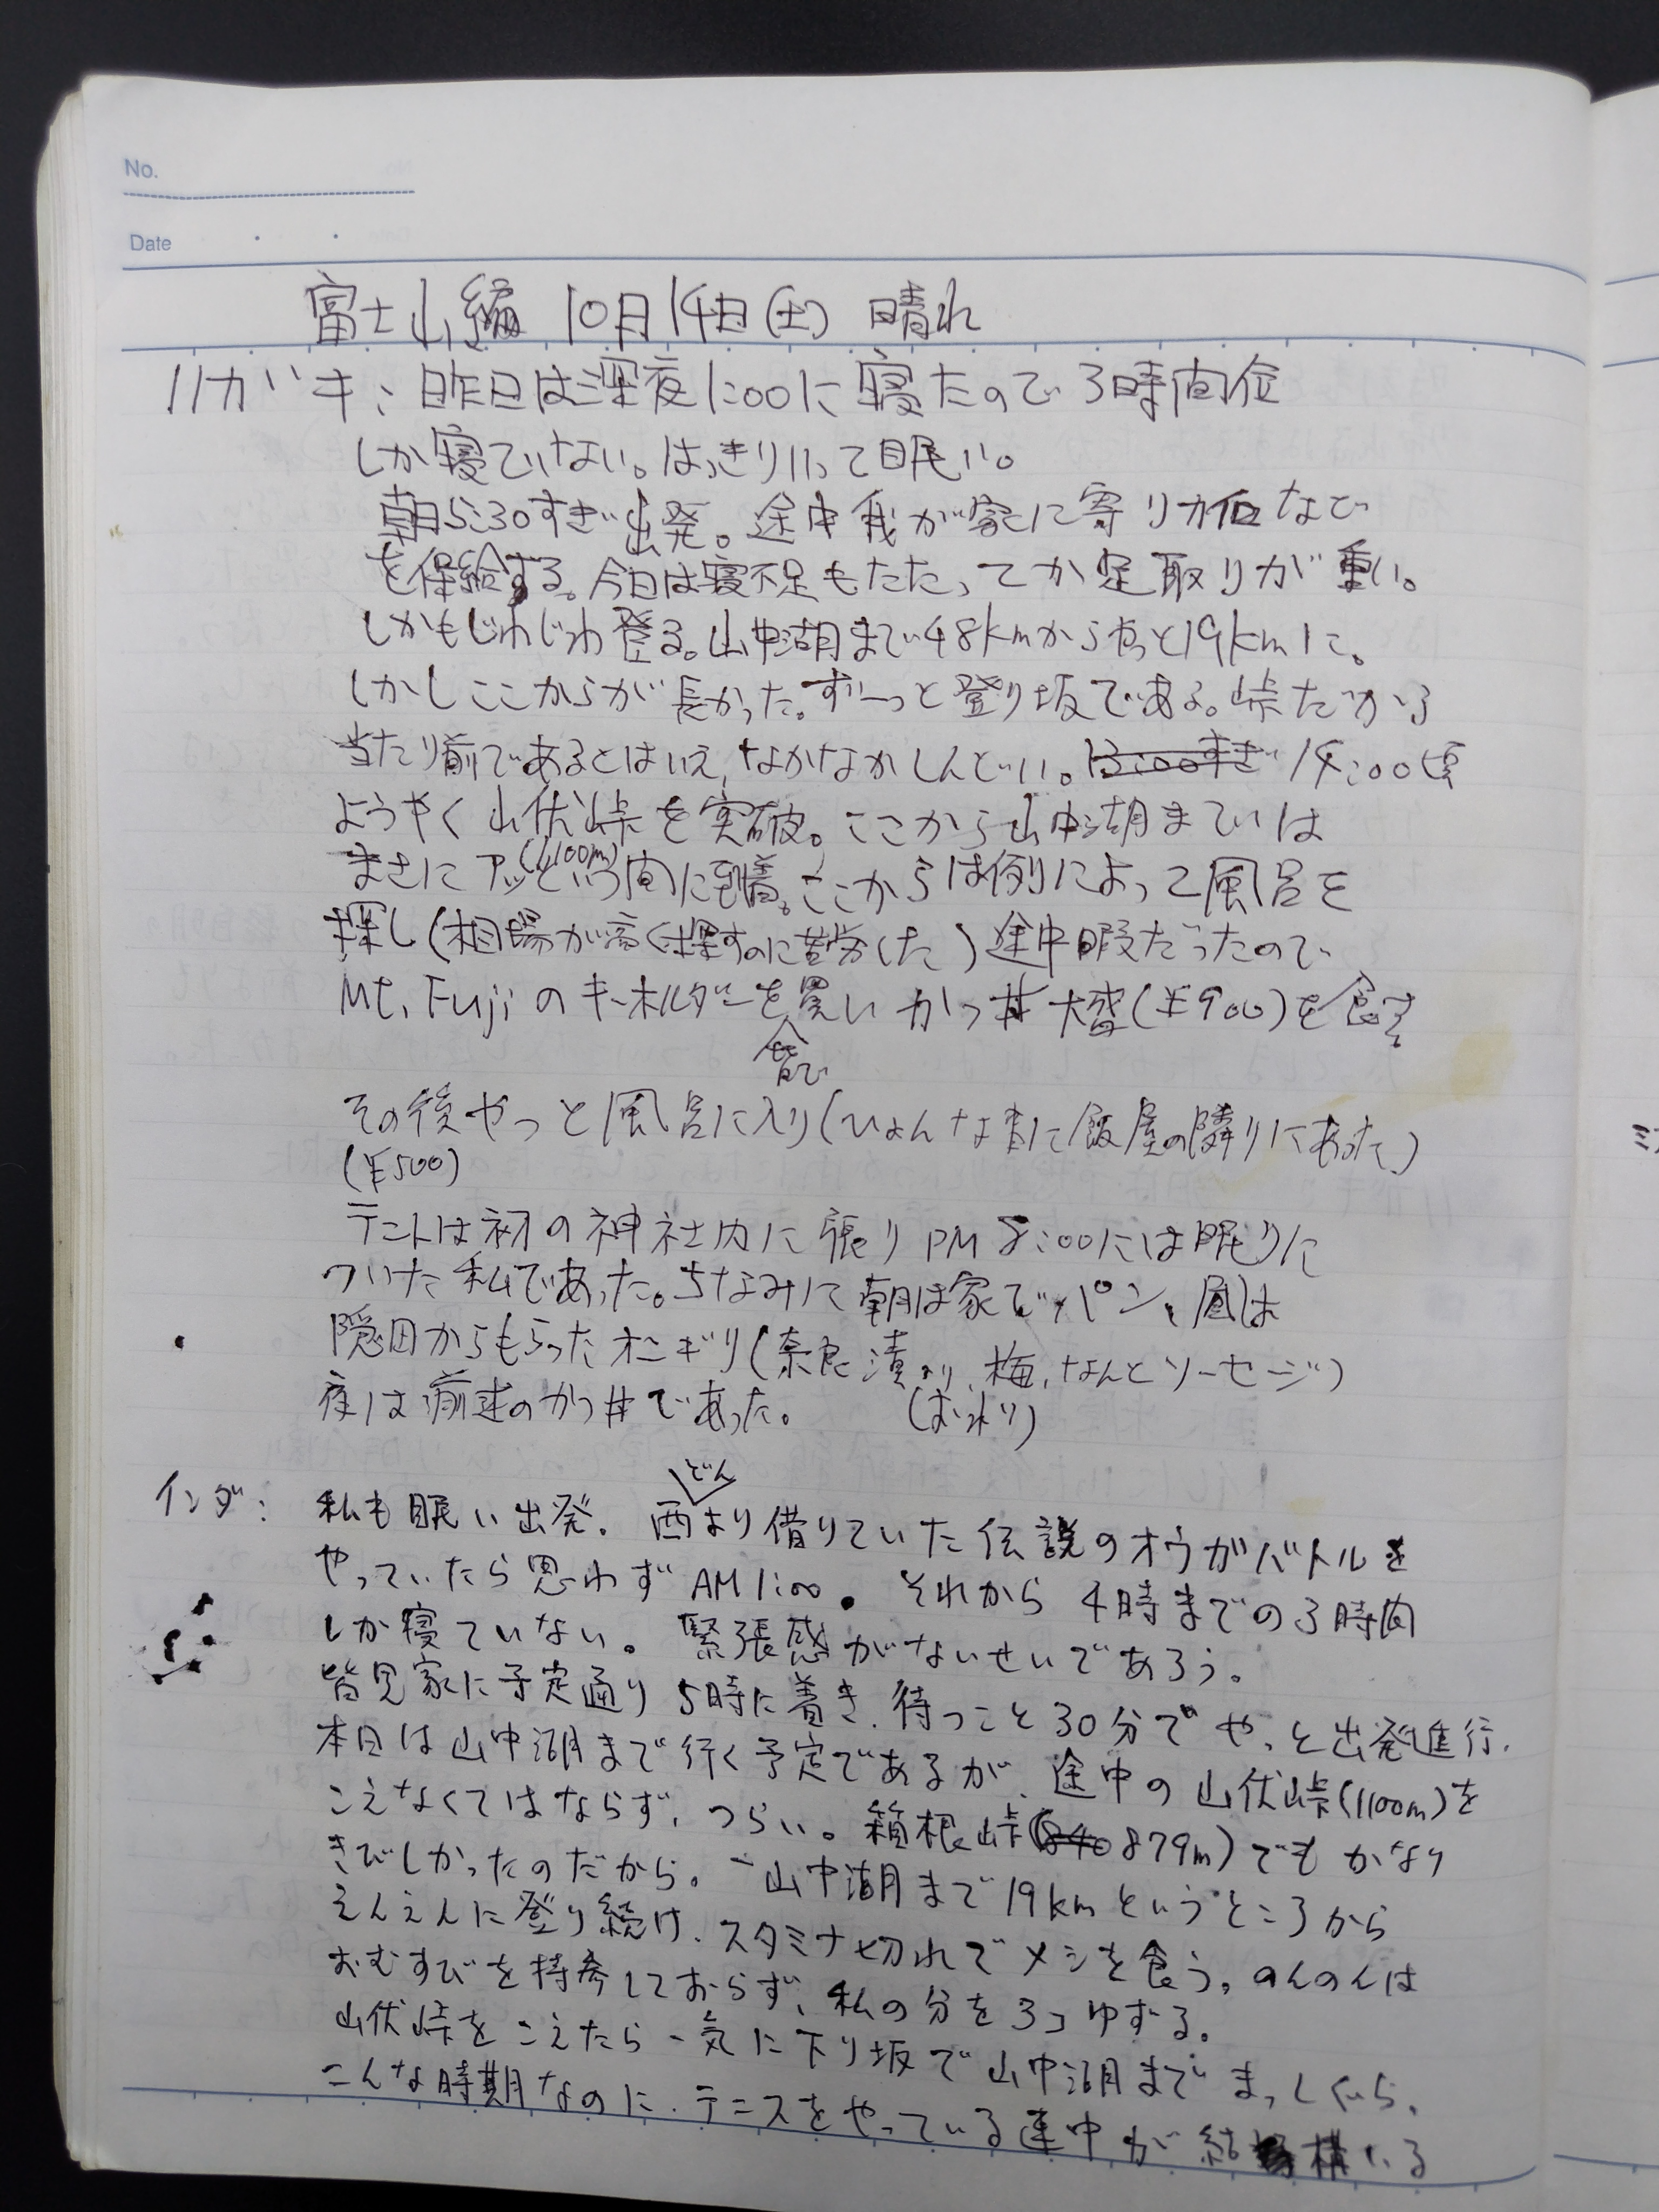 No.
Date
富士山編 10月14日(土) 晴れ
リガキ: 昨日は深夜1:00に寝たので3時間位
しか寝ていない。はっきりいって眠い。
朝5:30すぎ出発。途中我が家に寄りカロなど
を保給する。今日は寝不足もたたってか足取りが重い。
しかもじわじわ登る。山中湖まで48kmからやっと19kmに。
しかしここからが長かった。ずーっと登り坂である。峠だから
当たり前であるとはいえ、なかなかしんどい。13:00すぎ 14:00頃
ようやく山伏峠を突破。ここから山中湖までは
(1100m)
まさにアッという間に到着。ここからは例によって風呂を
探し(相場が高く探すのに苦労した)途中暇だったので
Mt, Fujiのキーホルダーを買いかつ丼大盛(¥900)を食す
その後やっと風呂に入り(ひょんな事に飯屋の隣りにあった)
(¥500)
テントは初の神社内に張りPM 8:00には眠りに
ついた私であった。ちなみに朝は家でパン、昼は
隠田からもらったオニギリ(奈良漬より、梅、なんとソーセージ)
夜は前述のかつ丼であった。 (おわり)
インダ: 私も眠い出発. 西より借りていた伝説のオウガバトルを
どん
やっていたら思わずAM1:00. それから4時までの3時間
しか寝ていない。緊張感がないせいであろう。
皆見家に予定通り5時に着き、待つこと30分でやっと出発進行.
本日は山中湖まで行く予定であるが、途中の山伏峠(1100m)を
こえなくてはならず、つらい。箱根峠(840 879m)でもかなり
きびしかったのだから。 山中湖まで19kmというところから
えんえんに登り続け、スタミナ切れでメシを食う。のんのんは
おむすびを持参しておらず、私の分を3コゆずる。
山伏峠をこえたら一気に下り坂で山中湖までまっしぐら、
こんな時期なのに、テニスをやっている連中が結構いる